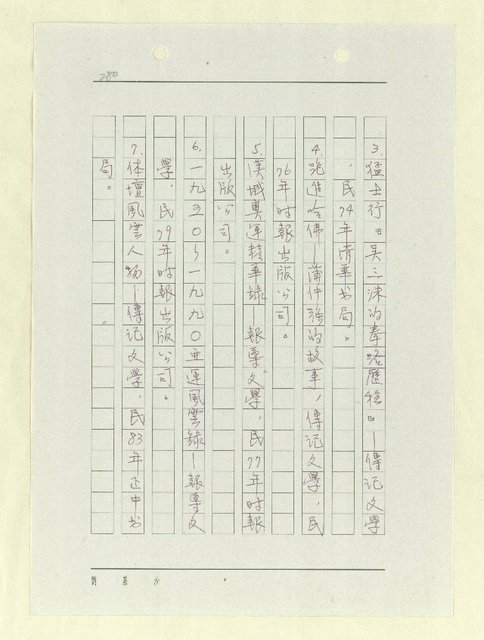 280
3.猛士行「吳三洙的奪路歷程」—傳記文學
,民74年清華书局。
4.跑進哈佛—蒲仲強的故事,傳記文學,民
76年时報出版公司。
5.漢城奧運精華錄—報導文學,民77年时報
出版公司。
6.一九五〇~一九九〇亚運風雲錄—報導文
學,民79年时報出版公司。
7.体壇風雲人物—傳記文學,民83年正中书
局。